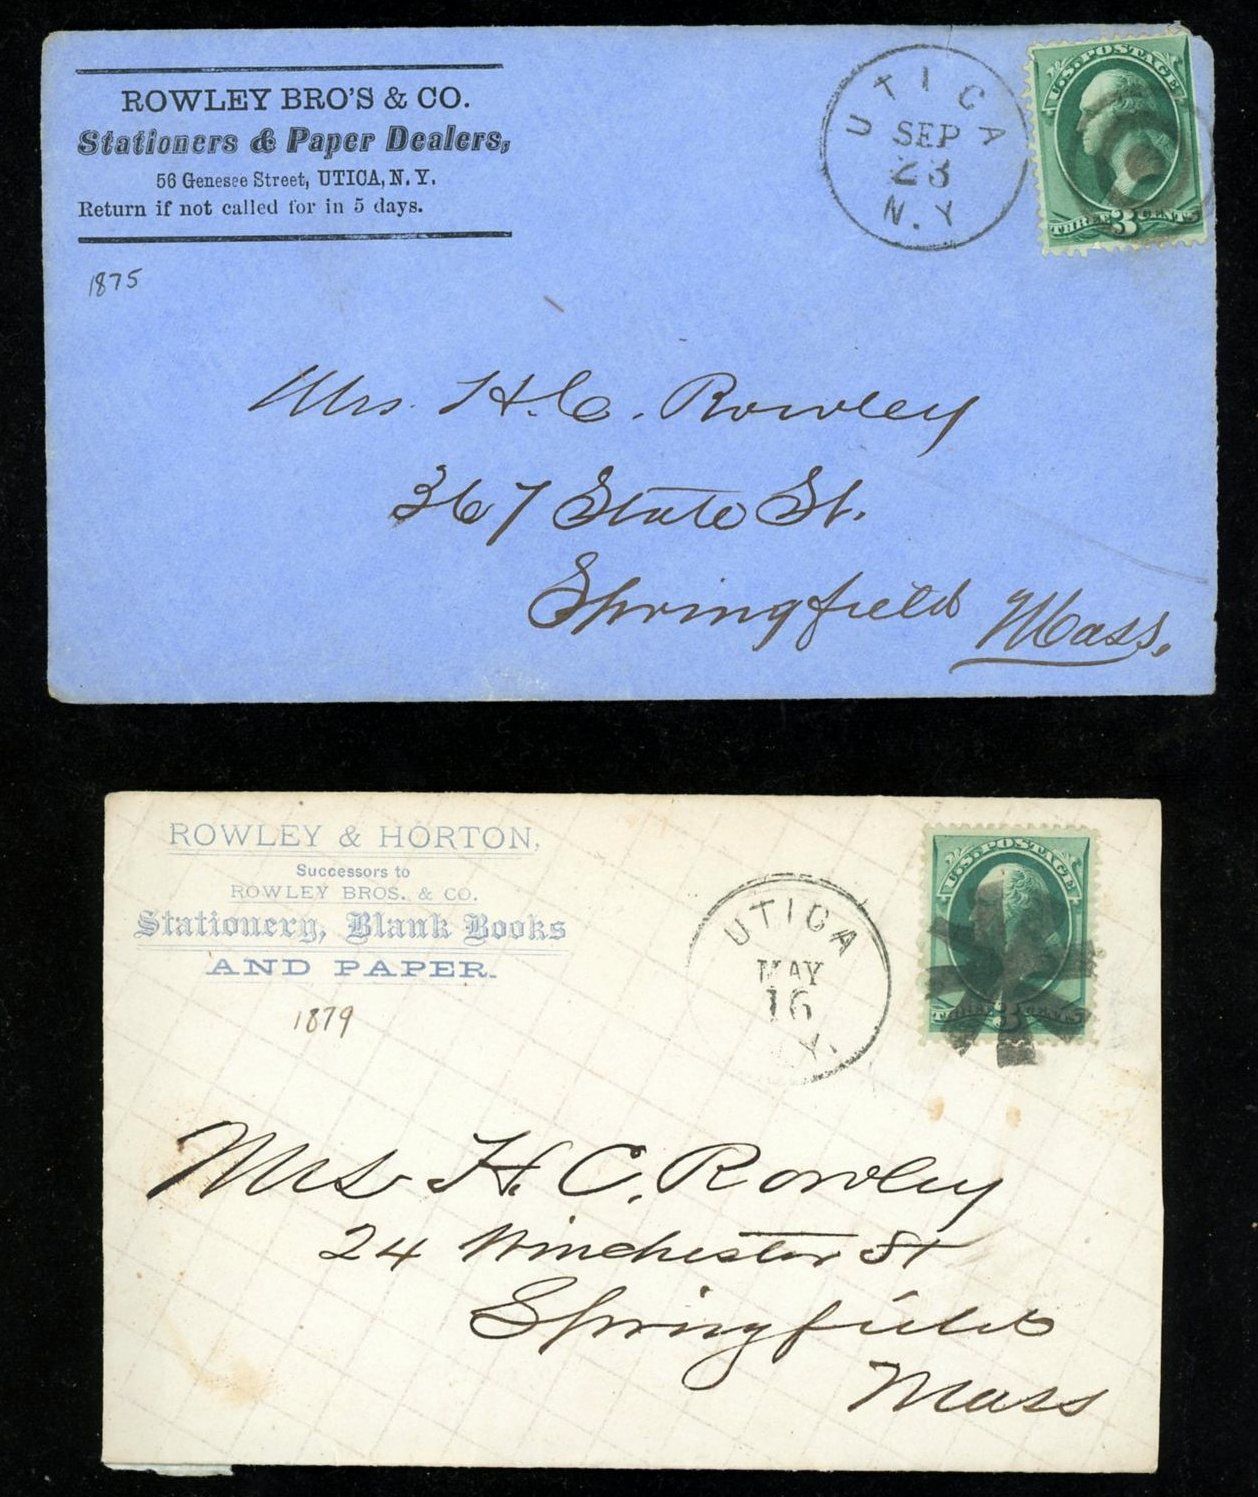 ROWLEY BRO'S & CO.
Stationers & Paper Dealers,
56 Genesee Street, UTICA, N. Y.
Return if not called for in 5 days.
1875
UTICA
SEP
23
N.Y
U.S. POSTAGE
THREE 3 CENTS
Mrs. H. C. Rowley
367 State St.
Springfield Mass.
ROWLEY & HORTON,
Successors to
ROWLEY BROS. & CO.
Stationery, Blank Books
AND PAPER.
1879
UTICA
MAY
16
Y.
U.S. POSTAGE
THREE 3 CENTS
Mrs H. C. Rowley
24 Winchester St
Springfield
Mass